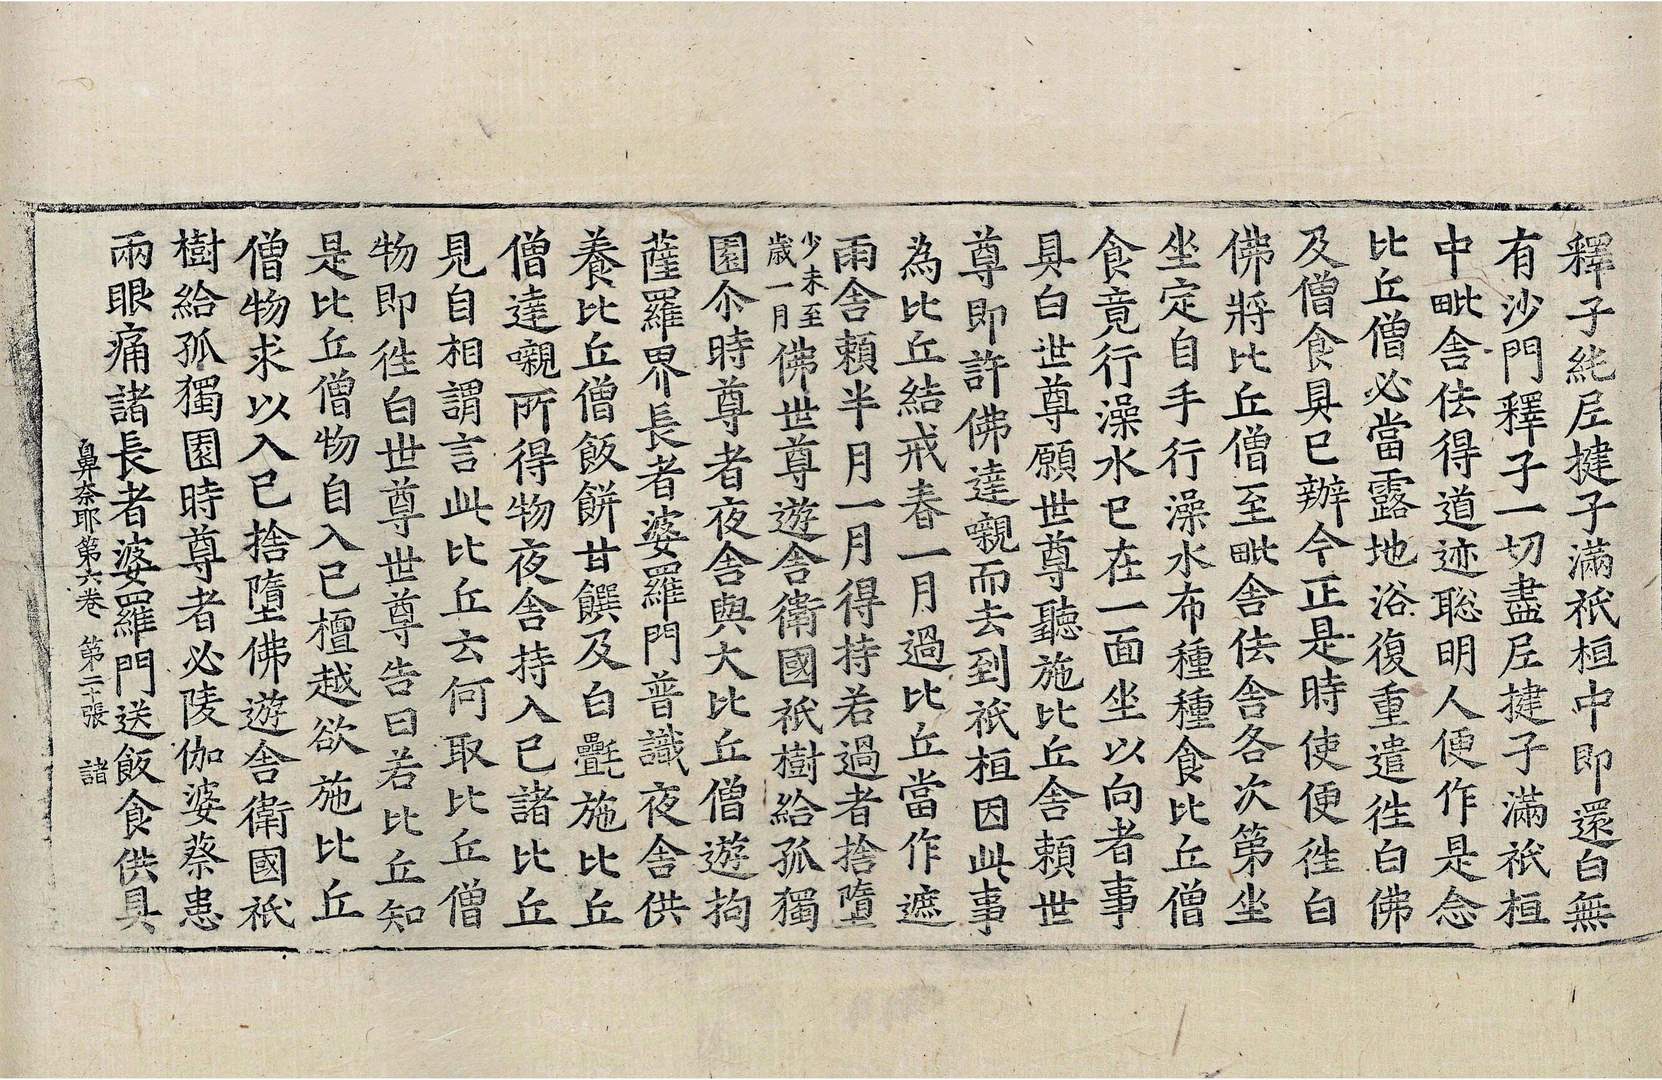 釋子純𡰱揵子滿祇桓中即還白無
有沙門釋子一切盡𡰱揵子滿祇桓
中毗舍佉得道迹聡明人便作是念
比丘僧必當露地浴復重遣徃白佛
及僧食具已辦今正是時使便徃白
佛將比丘僧至毗舍佉舍各次第坐
坐定自手行澡水布種種食比丘僧
食竟行澡水已在一面坐以向者事
具白世尊願世尊聽施比丘舍賴世
尊即許佛達嚫而去到祇桓因此事
為比丘結戒春一月過比丘當作遮
雨舍賴半月一月得持若過者捨墮
少未至歳一月佛世尊遊舍衛國祇樹給孤獨
園尒時尊者夜舍與大比丘僧遊拘
薩羅界長者婆羅門普識夜舍供
養比丘僧飯餅甘饌及白㲲施比丘
僧達嚫所得物夜舍持入已諸比丘
見自相謂言此比丘云何取比丘僧
物即徃白世尊世尊告曰若比丘知
是比丘僧物自入已檀越欲施比丘
僧物求以入已捨墮佛遊舍衛國祇
樹給孤獨園時尊者必陵伽婆蔡患
兩眼痛諸長者婆羅門送飯食供具
鼻奈耶第六卷　第二十張　諸